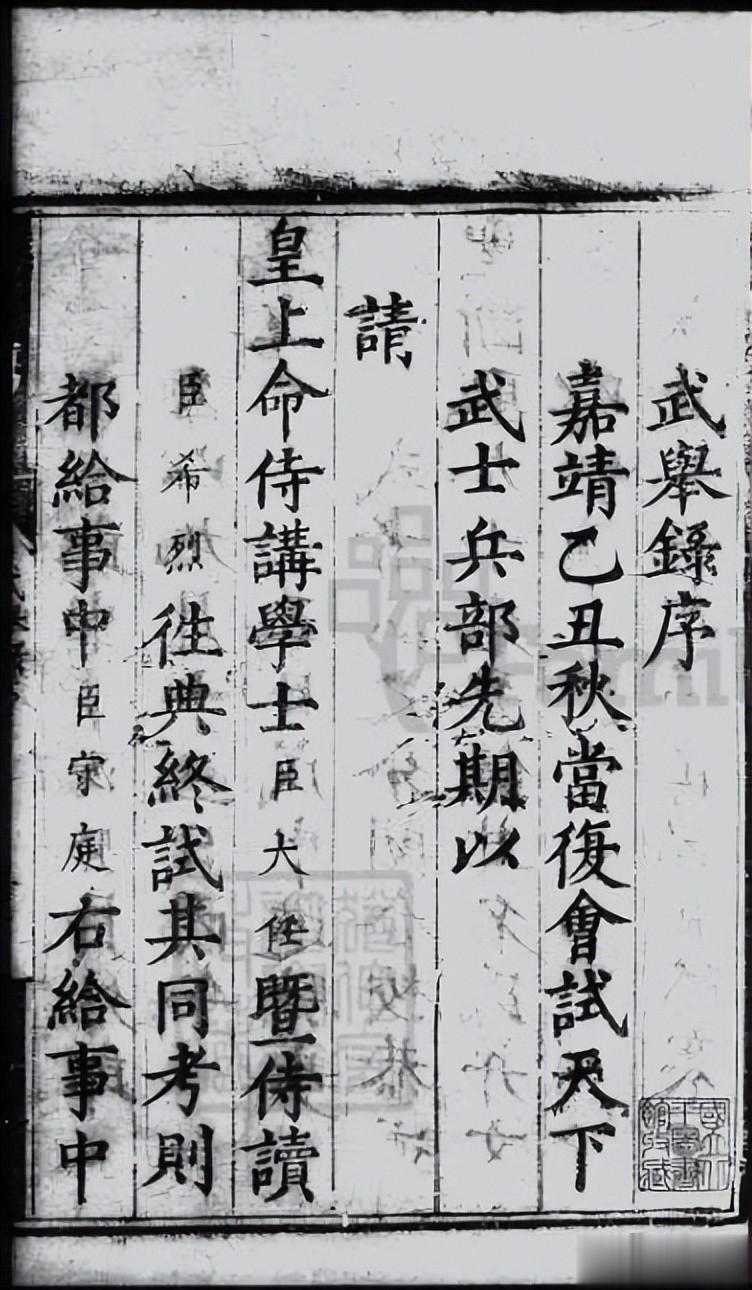 武舉錄序
嘉靖乙丑秋當復會試天下
武士兵部先期以
請
皇上命侍講學士臣大任曁侍讀
臣希烈徃典終試其同考則
都給事中臣守庭右給事中